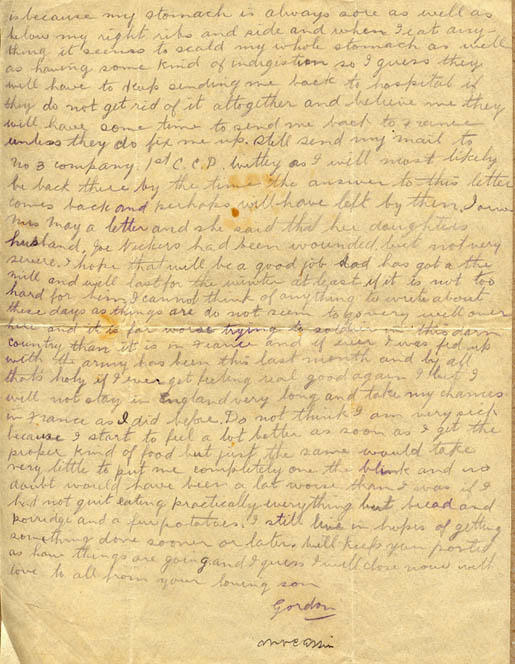 is because my stomach is always sore as well as
below my right ribs and side and when I eat any-
thing it seems to scald my whole stomach as well
as having some kind of indigestion so I guess they
will have to keep sending me back to hospital if
they do not get rid of it altogether and believe me they
will have some time to send me back to France
unless they do fix me up. Still send my mail to
No 3 company, 1st C.C.D. Wittey as I will most likely
be back there by the time the answer to this letter
comes back and perhaps will have left by then. I owe
Mrs May a letter and she said that her daughters
husband, Joe Neckers had been wounded, but not very
severe. I hope that will be a good job Dad has got a the
mill and will last for the winter at least if it is not too
hard for him. I cannot think of anything to write about
these days as things are do not seem to go very well over
and it is far worse trying to soldier in this darn
country than it is in France and if ever I was fed up
with the army has been this last month and by all
thats holy if I ever get feeling real good again I but I
will not stay in England very long and take my chances
in France as I did before. Do not think I am very sick
because I start to feel a lot better as soon as I get the
proper kind of food but just the same would take
very little to put me completely one the blink and no
doubt would have been a lot worse than I was if I
had not quit eating practically everything but bread and
porridge and a few potatoes. I still live in hopes of getting
something done sooner or later. Will keep you posted
as how things are going and I guess I will close now with
love to all from your loving son
Gordon